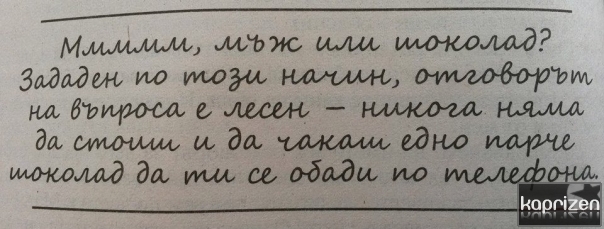 Мммммм, мъж или шоколад?
Зададен по този начин, отговорът
на въпроса е лесен – никога няма
да стоиш и да чакаш едно парче
шоколад да ти се обади по телефона.
kaprizen